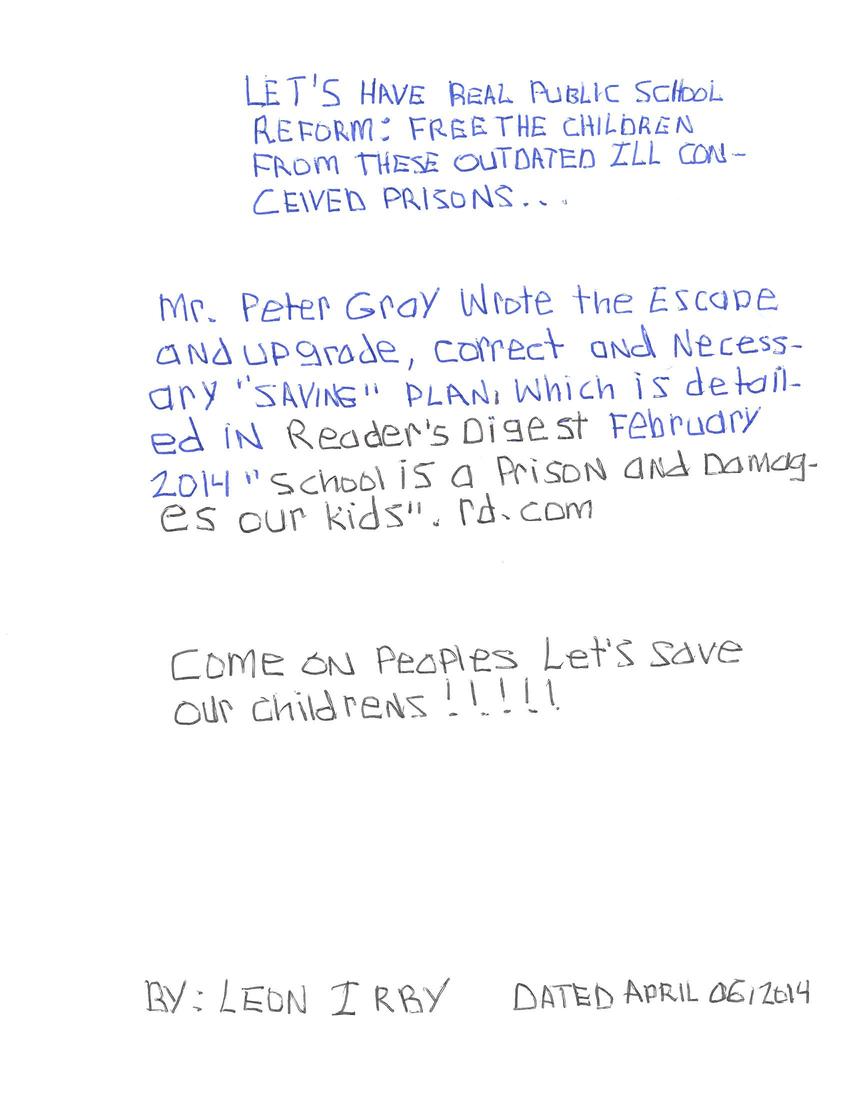 LET'S HAVE REAL PUBLIC SCHOOL
REFORM: FREE THE CHILDREN
FROM THESE OUTDATED ILL CON-
CEIVED PRISONS...
Mr. Peter Gray Wrote the Escape
AND upgrade, correct and Necess-
ary "SAVING" PLAN, Which is detail-
ed iN Reader's Digest February
2014 "School is a Prison and Damag-
es our kids". rd.com
Come on Peoples Let's save
our childrens !!!!!
BY: LEON IRBY DATED APRIL 06/2014